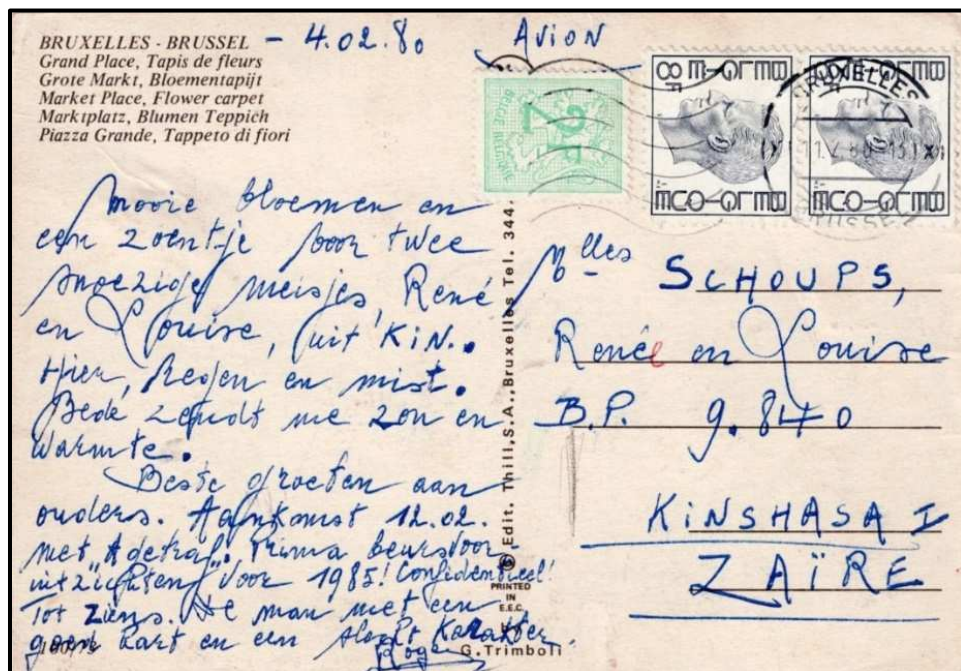 BRUXELLES - BRUSSEL - 4.02.80
Grand Place, Tapis de fleurs
Grote Markt, Bloementapijt
Market Place, Flower carpet
Marktplatz, Blumen Teppich
Piazza Grande, Tappeto di fiori
AVION
2F
8F BELGIE-BELGIQUE
BRUXELLES
BRUSSEL
mooie bloemen en
een zoentje voor twee
snoezige meisjes, René
en Louise, uit KIN.
Hier, Regen en mist.
zendt me zon en
warmte.
Beste groeten aan
ouders. Aankomst 12.02.
met Prima beursvoor
uitzichten voor 1985! Confidentieel!
Tot Ziens. De man met een
hart en een slecht Karakter.
© Edit. Thill, S.A., Bruxelles Tel. 344.
PRINTED
IN
E.E.C.
G. Trimboli
Mlles
SCHOUPS,
Renée en Louise
B.P. 9.840
KINSHASA I
ZAÏRE